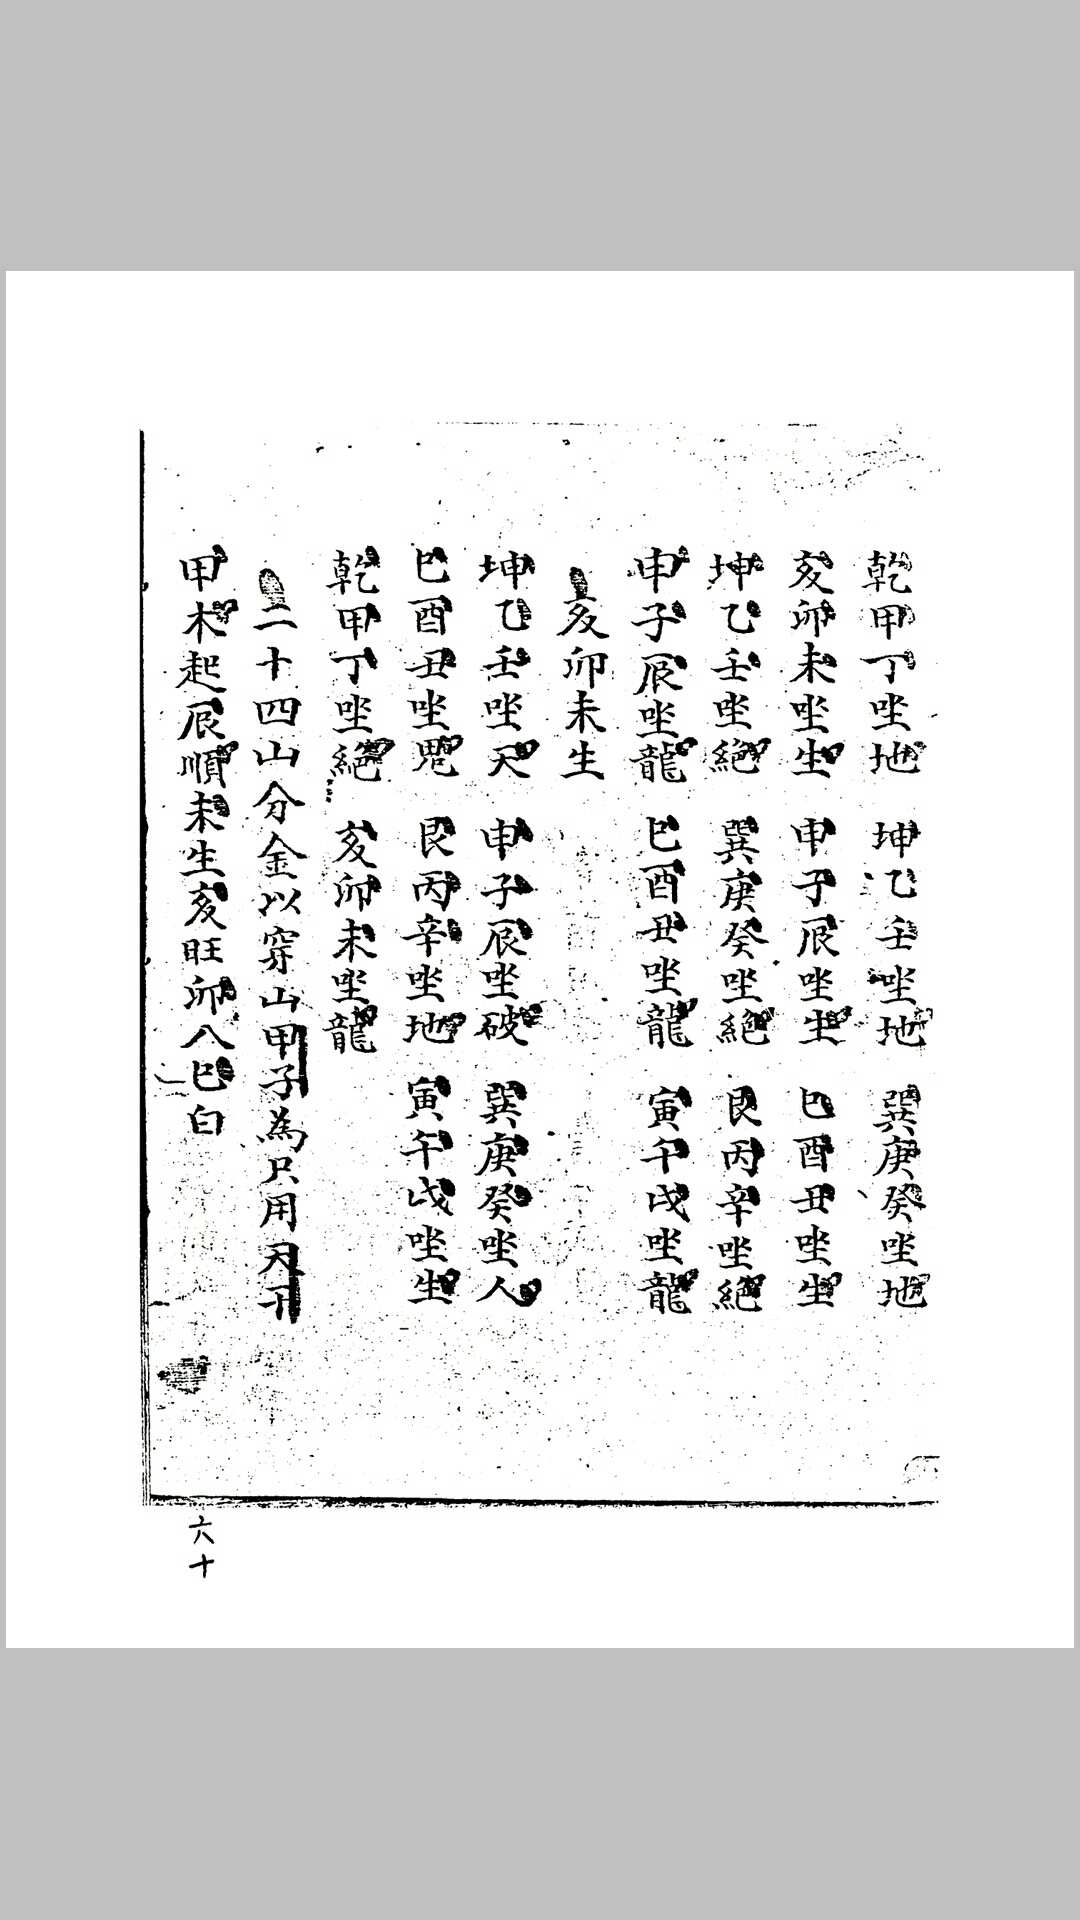 乾甲丁坐地 坤乙壬坐地 巽庚癸坐地
亥卯未坐生 申子辰坐生 巳酉丑坐生
坤乙壬坐絕 巽庚癸坐絕 艮丙辛坐絕
申子辰坐龍 巳酉丑坐龍 寅午戌坐龍
亥卯未生
坤乙壬坐天 申子辰坐破 巽庚癸坐人
巳酉丑坐鬼 艮丙辛坐地 寅午戌坐生
乾甲丁坐絕 亥卯未坐龍
二十四山分金以穿山甲子為只用天干
甲木起辰順未生亥旺卯八巳白
六十